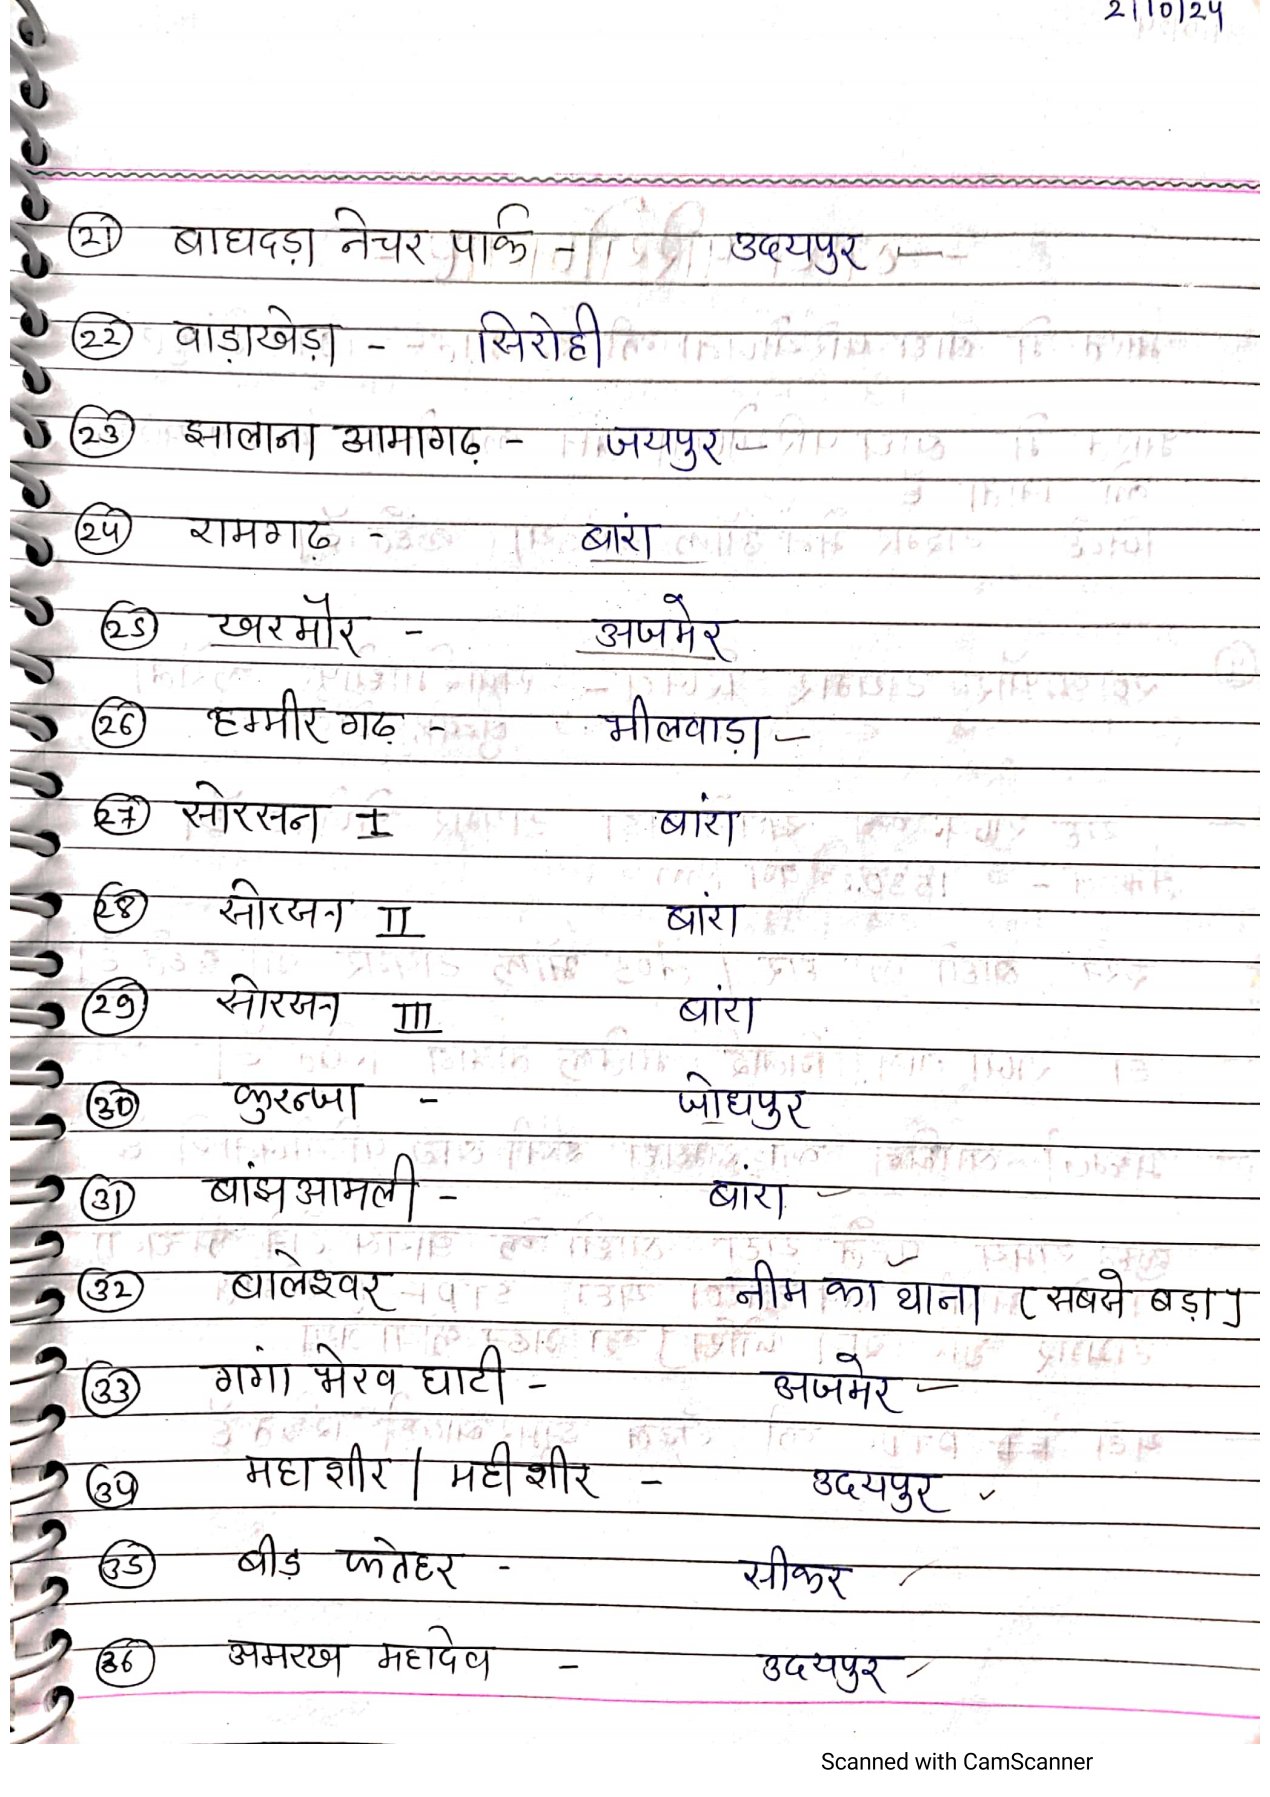 21/10/24
(21) बाघदड़ा नेचर पार्क - उदयपुर —
(22) वाड़ाखेड़ा - सिरोही
(23) झालाना आमागढ़ - जयपुर —
(24) रामगढ़ - बांरा
(25) खरमौर - अजमेर
(26) हम्मीरगढ़ - भीलवाड़ा —
(27) सोरसन I बांरा
(28) सोरसन II बांरा
(29) सोरसन III बांरा
(30) कुरन्जा - जोधपुर
(31) बांझ आमली - बांरा
(32) बालेश्वर नीम का थाना (सबसे बड़ा)
(33) गंगा भैरव घाटी - अजमेर —
(34) महाशीर / महीशीर - उदयपुर ✓
(35) बीड़ फतेहर - सीकर
(36) अमरख महादेव - उदयपुर
Scanned with CamScanner